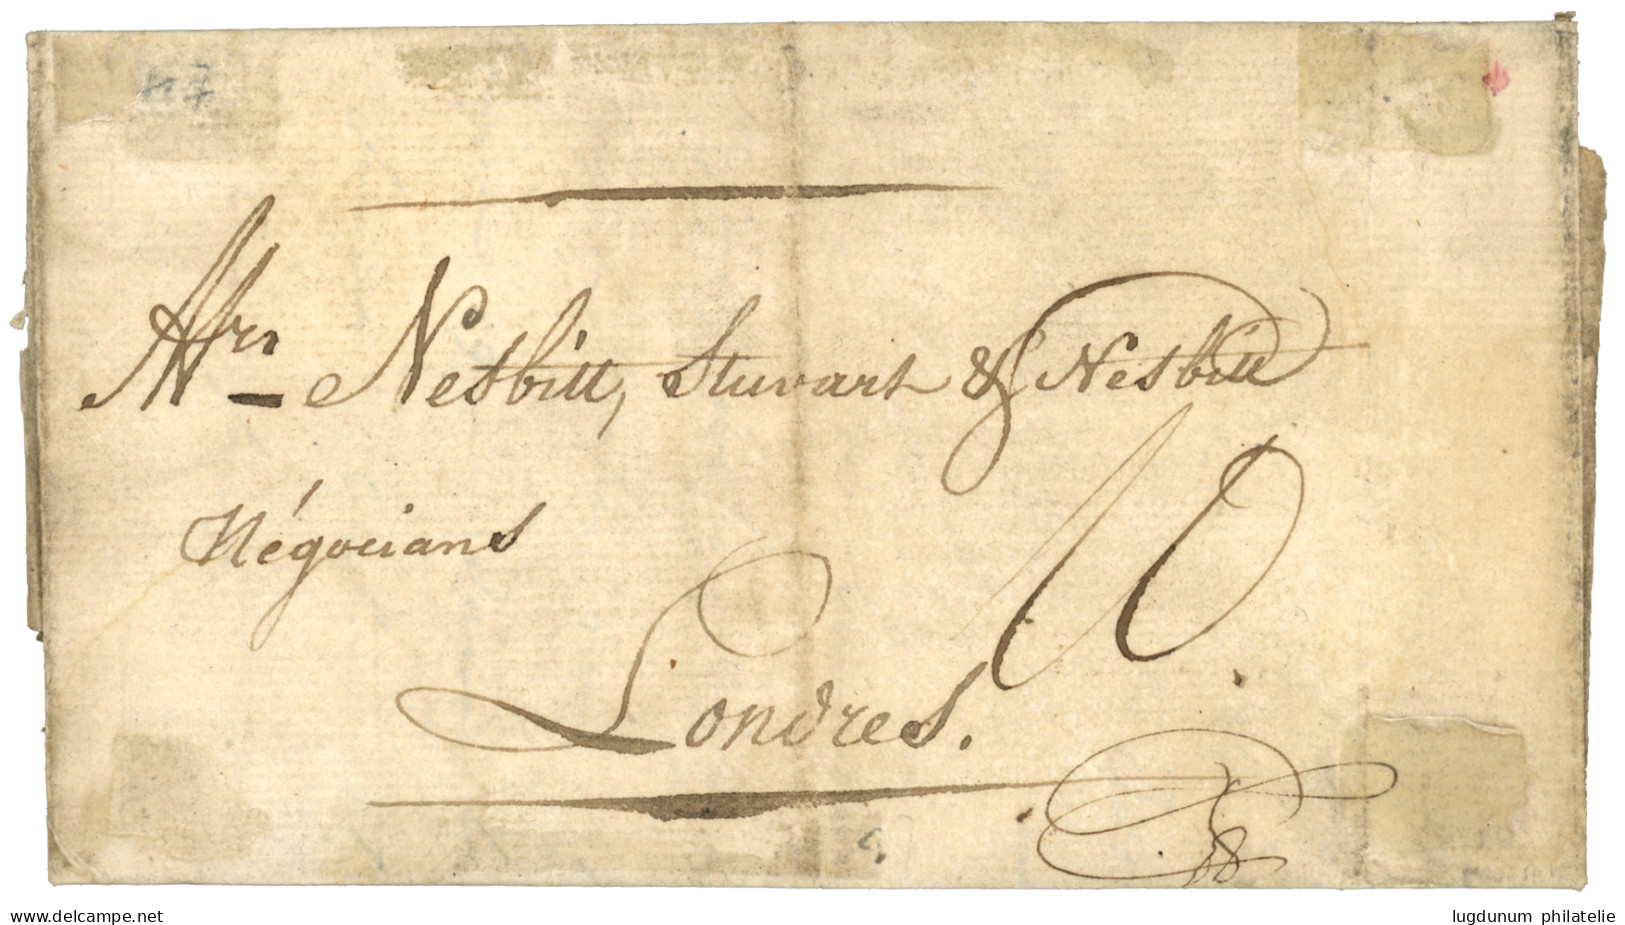 Mrs Nesbitt, Stuwart & Nesbitt
Négocians
10
Londres.
delcampe.net
lugdunum philatelie